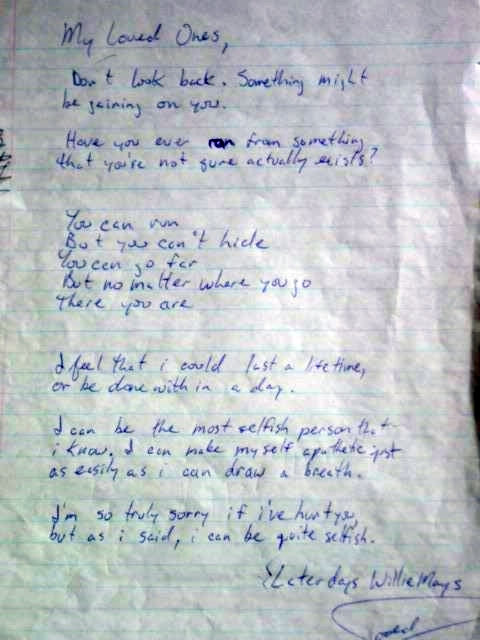 My Loved Ones,
Don't look back. Something might
be gaining on you.
Have you ever ran from something
that you're not sure actually exists?
You can run
But you can't hide
You can go far
But no matter where you go
there you are
I feel that i could last a lifetime,
or be done with in a day.
I can be the most selfish person that
i know. I can make myself apathetic just
as easily as i can draw a breath.
I'm so truly sorry if i've hurt you,
but as i said, i can be quite selfish.
Laterdays Willie Mays